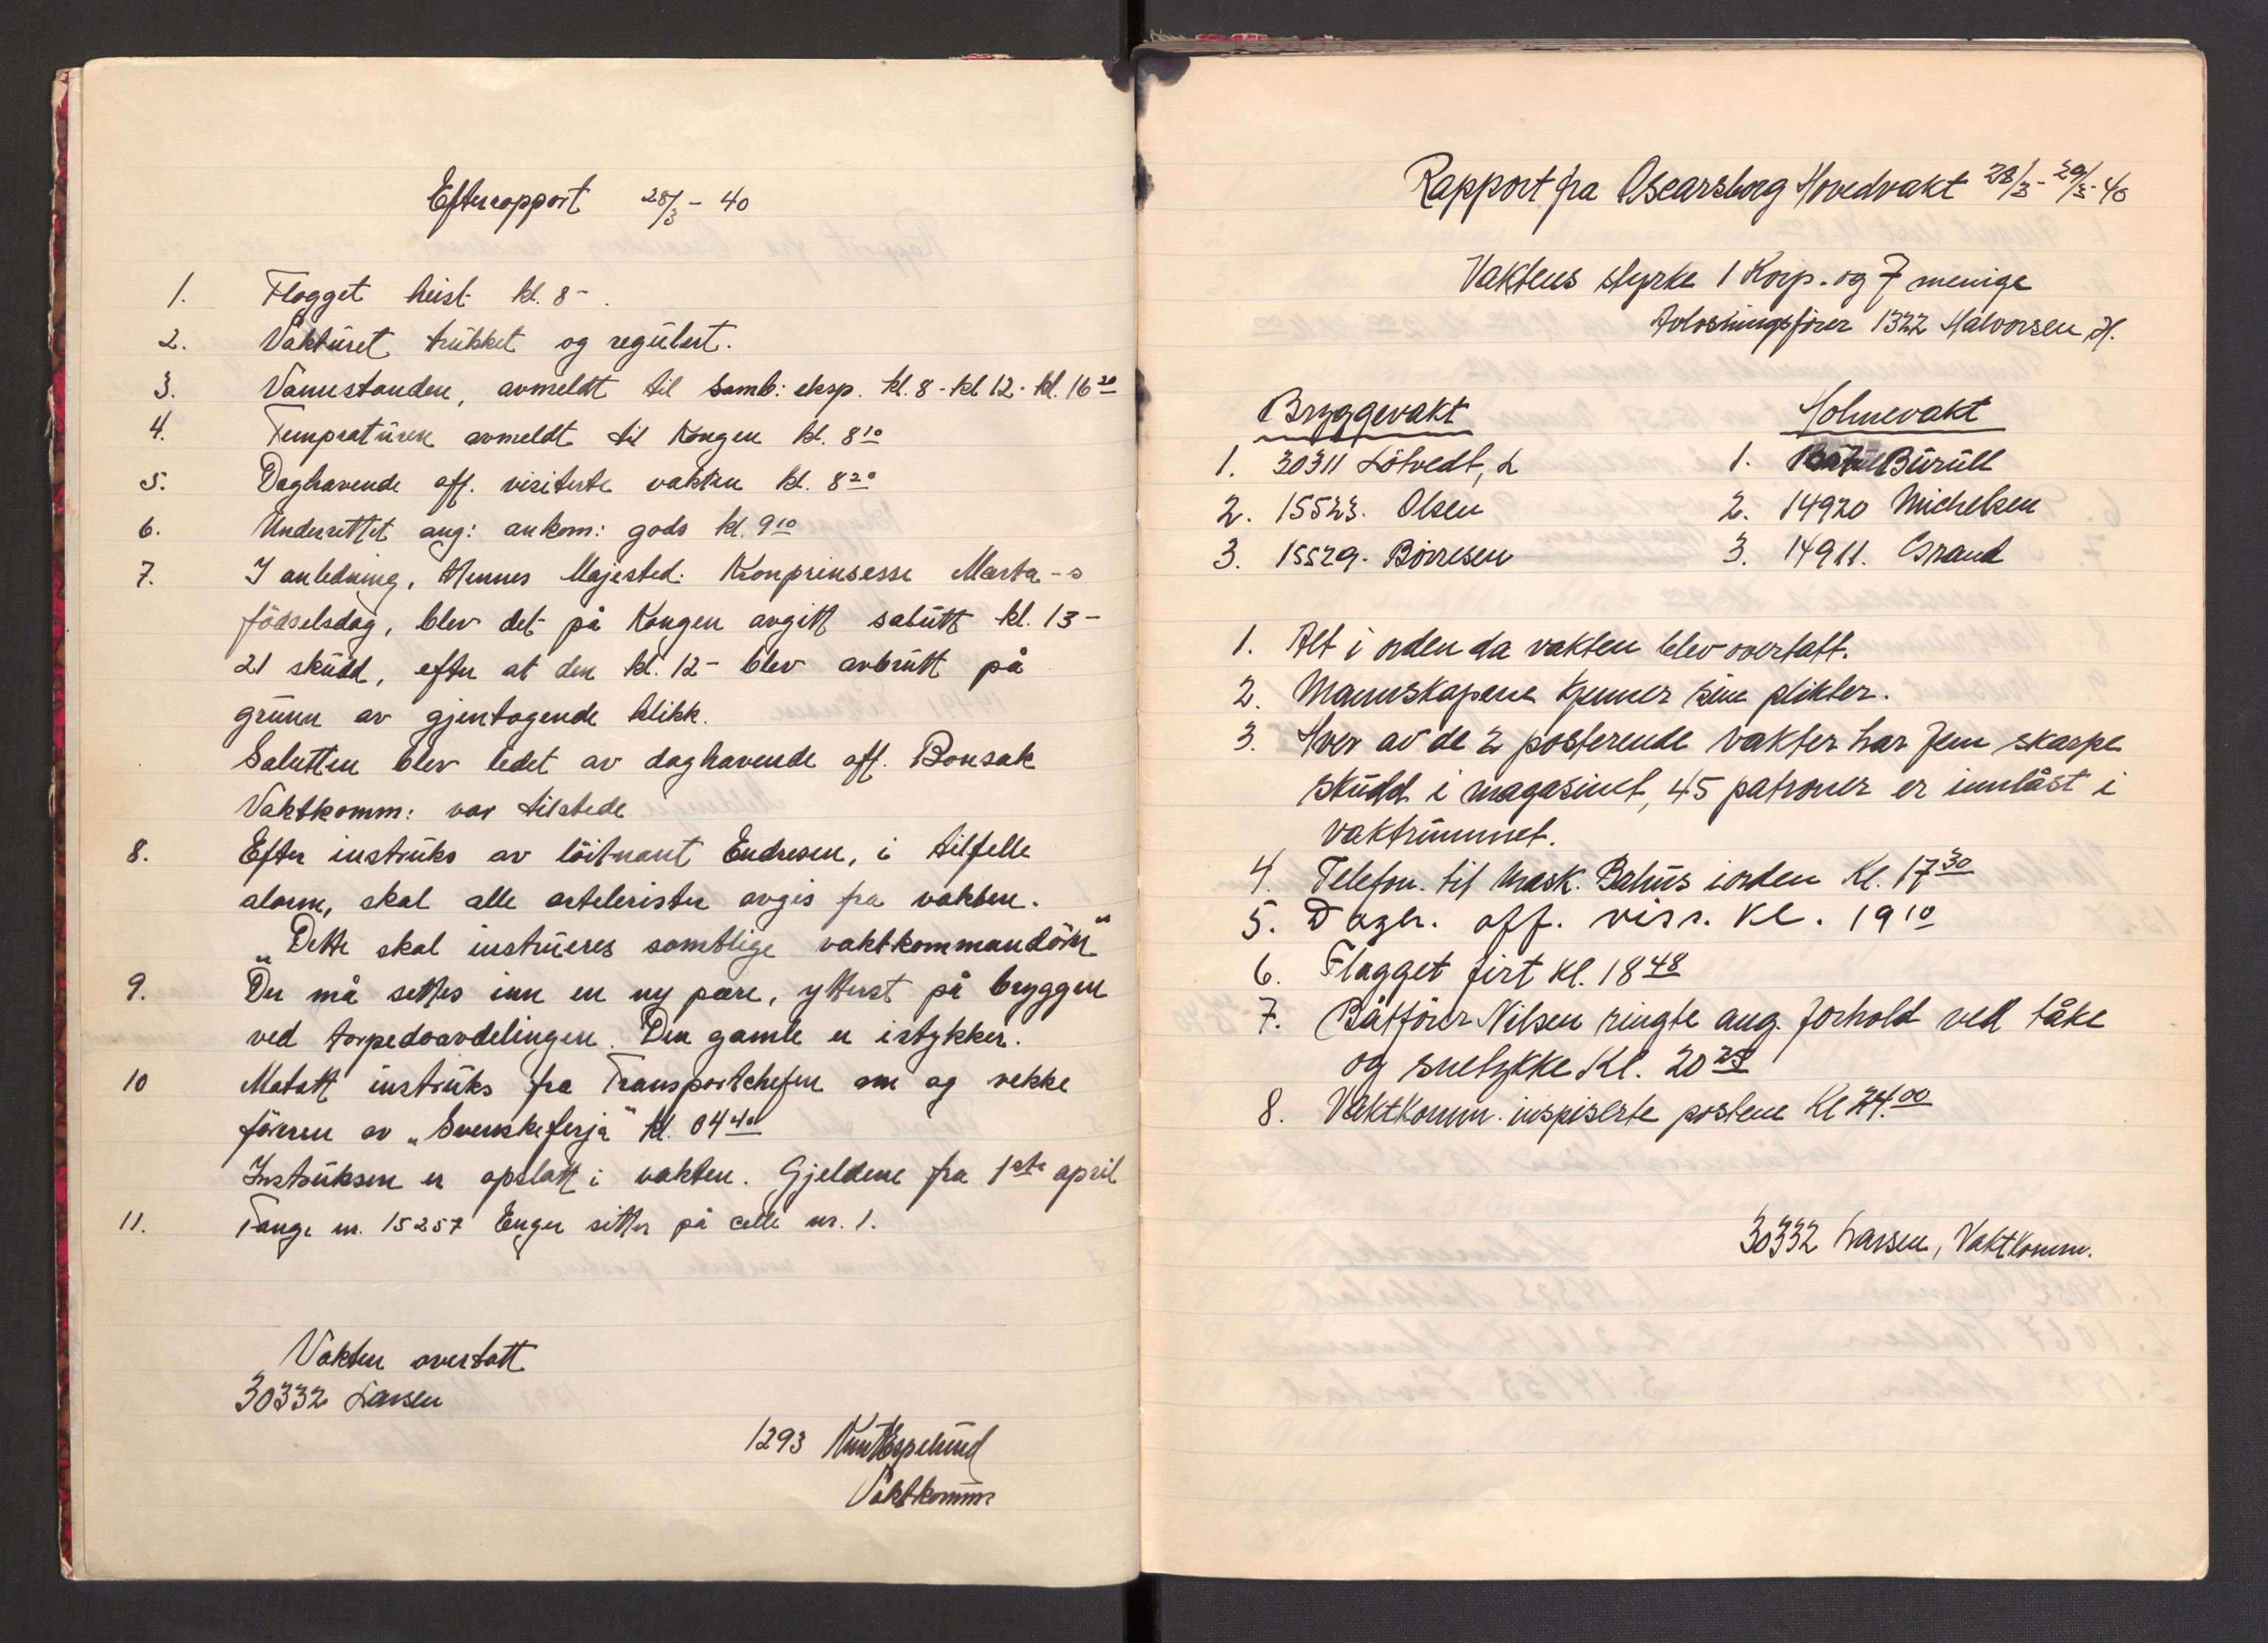 Efterrapport 28/3 - 40
1. Flagget heist kl. 8 - .
2. Vakturet trukket og regulert.
3. Vannstanden, avmeldt til samb: eksp. kl. 8 - kl 12 - kl. 16 20
4. Tempraturen avmeldt til Kongen kl. 8 10
5. Daghavende off. visiterte vakten kl. 8 20
6. Underrettet ang: ankom: gods kl. 9 10
7. I anledning, Hennes Majested: Kronprinsesse Marta-s
fødselsdag, blev det på Kongen avgitt salutt kl. 13 -
21 skudd, efter at den kl. 12 - blev avbrutt på
grunn av gjentagende klikk.
Salutten blev ledet av daghavende off. Bonsak
Vaktkomm: var tilstede
8. Efter instruks av löitnant Endresen, i tilfelle
alarm, skal alle artelerister avgis fra vakten.
„Dette skal instrueres samtlige vaktkommandörer"
9. Der må settes inn en ny pære, ytterst på bryggen
ved torpedoavdelingen. Den gamle er istykker.
10 Motatt instruks fra Transportchefen om og vekke
föreren av „Svenskeferja" kl. 04 40
Instruksen er opslått i vakten. Gjeldene fra 1ste april
11. Fange nr. 15257 Enger sitter på celle nr. 1.
Vakten overtatt
30332 Larsen
1293 Knut Espelund
Vaktkomm:
Rapport fra Oscarsborg Hovedvakt 28/3 - 29/3 - 40
Vaktens styrke 1 Korp. og 7 menige
Avløsningsfører 1322 Halvorsen H.
Bryggevakt Holmevakt
1. 30311 Lötvedt, L 1. Burull
2. 15523. Olsen 2. 14920 Michelsen
3. 15529. Börresen 3. 14911. Grand
1. Alt i orden da vakten blev overtatt.
2. Mannskapene kjenner sine plikter.
3. Hver av de 2 posterende vakter har fem skarpe
skudd i magasinet, 45 patroner er innlåst i
vaktrummet.
4. Telefon. til Mask. Bahus iorden Kl. 17 30
5. Dagh. off. viss. Kl. 19 10
6. Flagget firt Kl. 18 48
7. Båtfører Nilsen ringte ang. forhold ved tåke
og snetykke Kl. 20 25
8. Vaktkomm. inspiserte postene Kl 24.00
30332 Larsen, Vaktkomm.